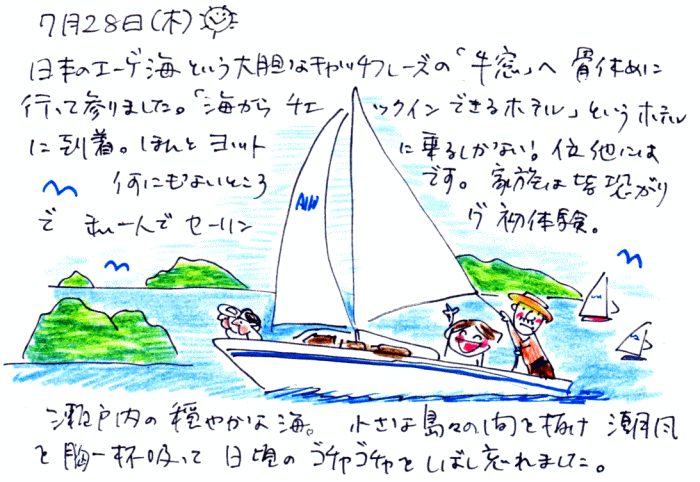 7月28日(木)
日本のエーゲ海という大胆なキャッチフレーズの「牛窓」へ 骨休めに
行って参りました。「海から チェックインできるホテル」というホテル
に到着。ほんと ヨットに乗るしかない!位他には
何にもないところです。 家族は皆恐がり
で 私一人で セーリング初体験。
AIW
瀬戸内の 穏やかな海。 小さな島々の間を抜け 潮風
を胸一杯吸って 日頃の ゴチャゴチャを しばし忘れました。